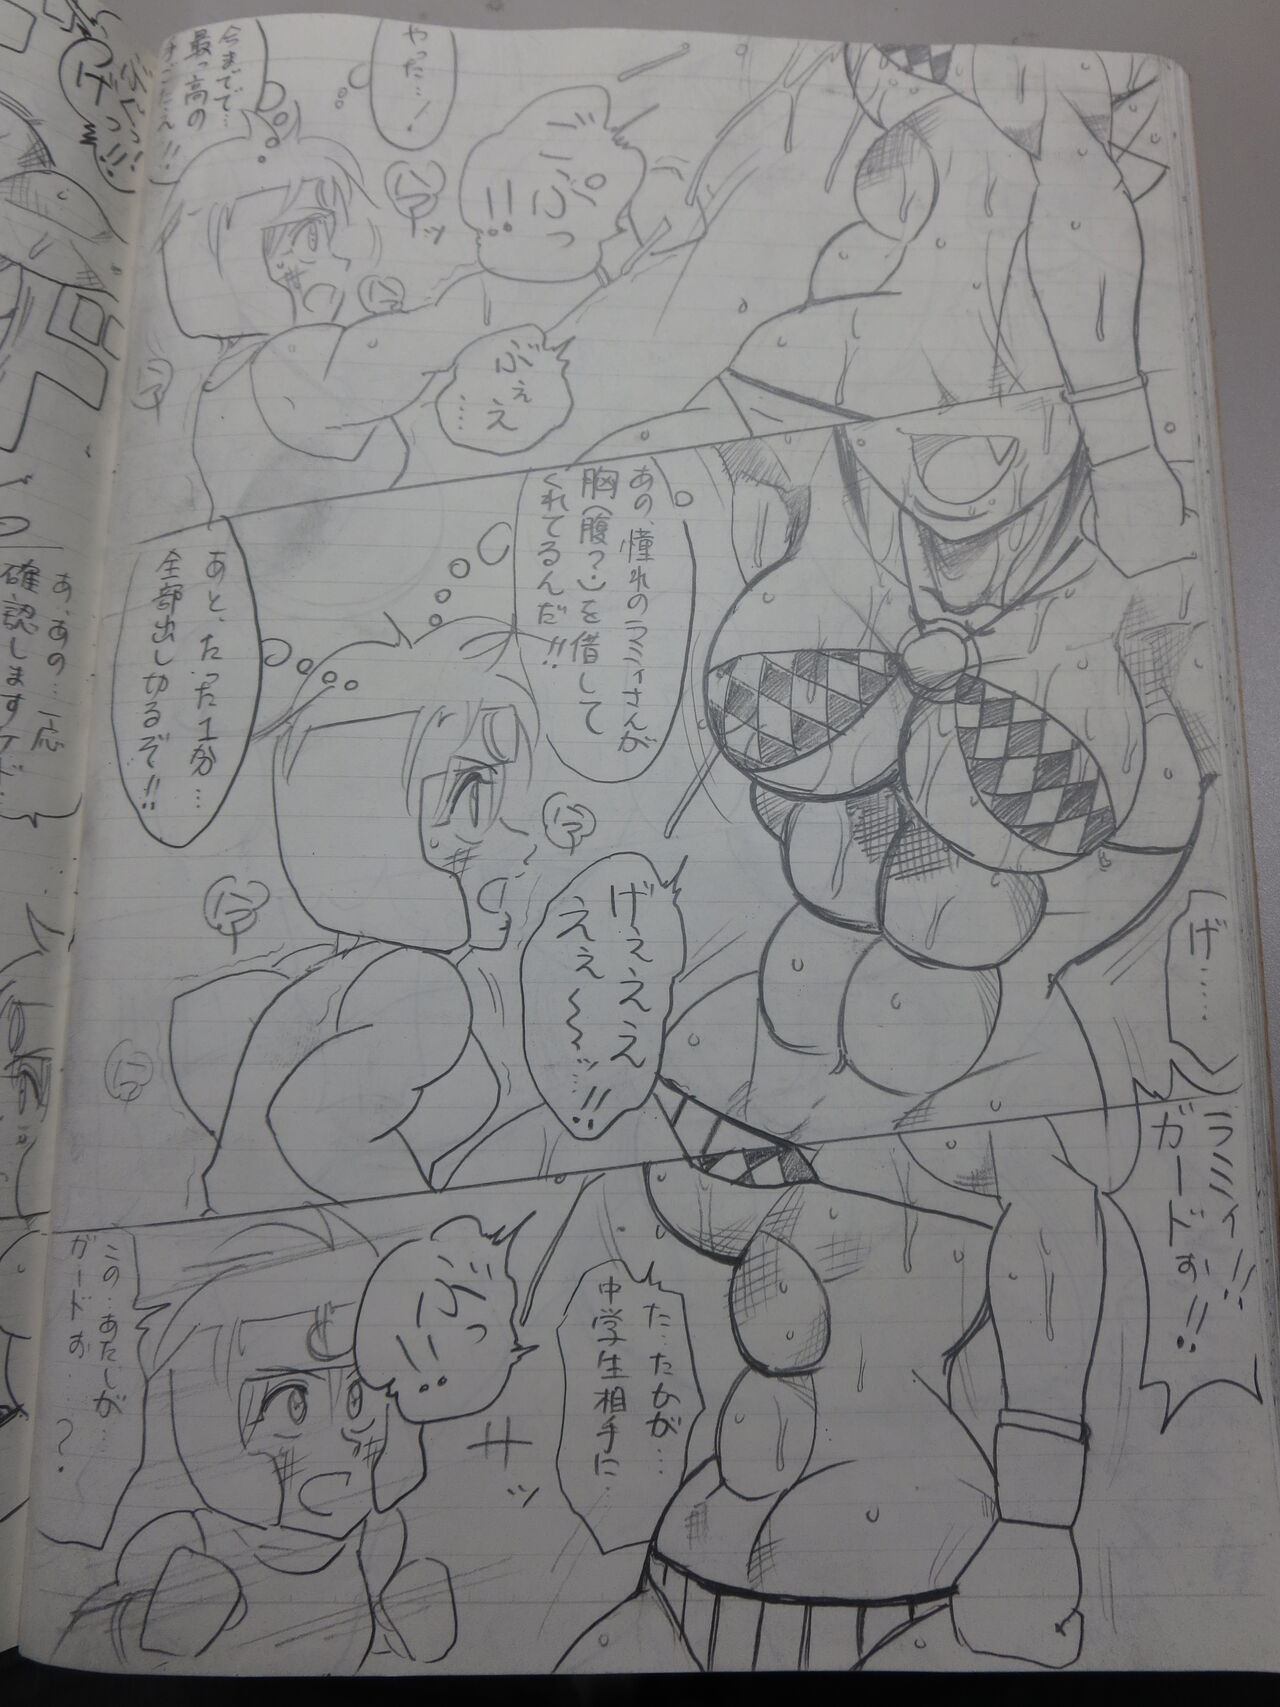 やった…!
今までで…
最っ高の
ごぷっ
!!
ハァ
ハァ
ハァ
ッ
ぶぇ
え
……
あの、憧れのラミィさんが
胸(腹?)を借して
くれてるんだ!!
あと、たった1分…
全部出しきるぞ!!
ハァ
ハァ
ハァ
げぇええ
ええぇ〜〜ッ…!!
げ……
ラミィ!!
ガードぉ!!
た…たかが…
中学生相手に…
ぶっ
!!
サ
ッ
この…あたしが…
ガードお……?
げっ!!
あ、あの…一応
確認しますケド…